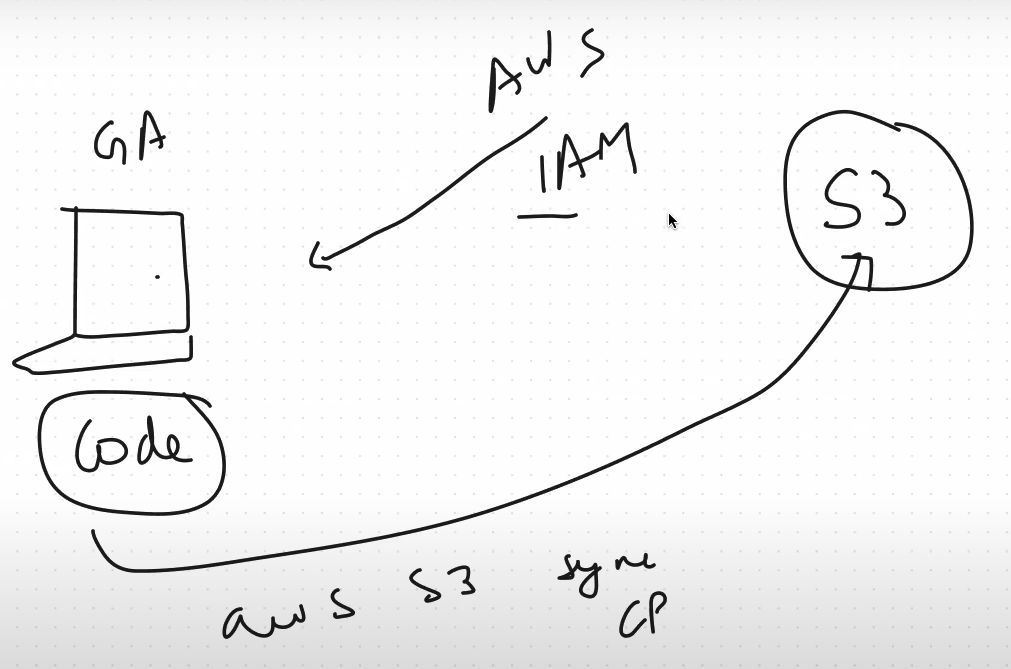 AWS
IAM
GA
S3
Code
aws S3 sync
CP